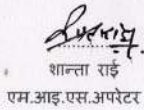 शान्ता राई
एम.आइ.एस.अपरेटर